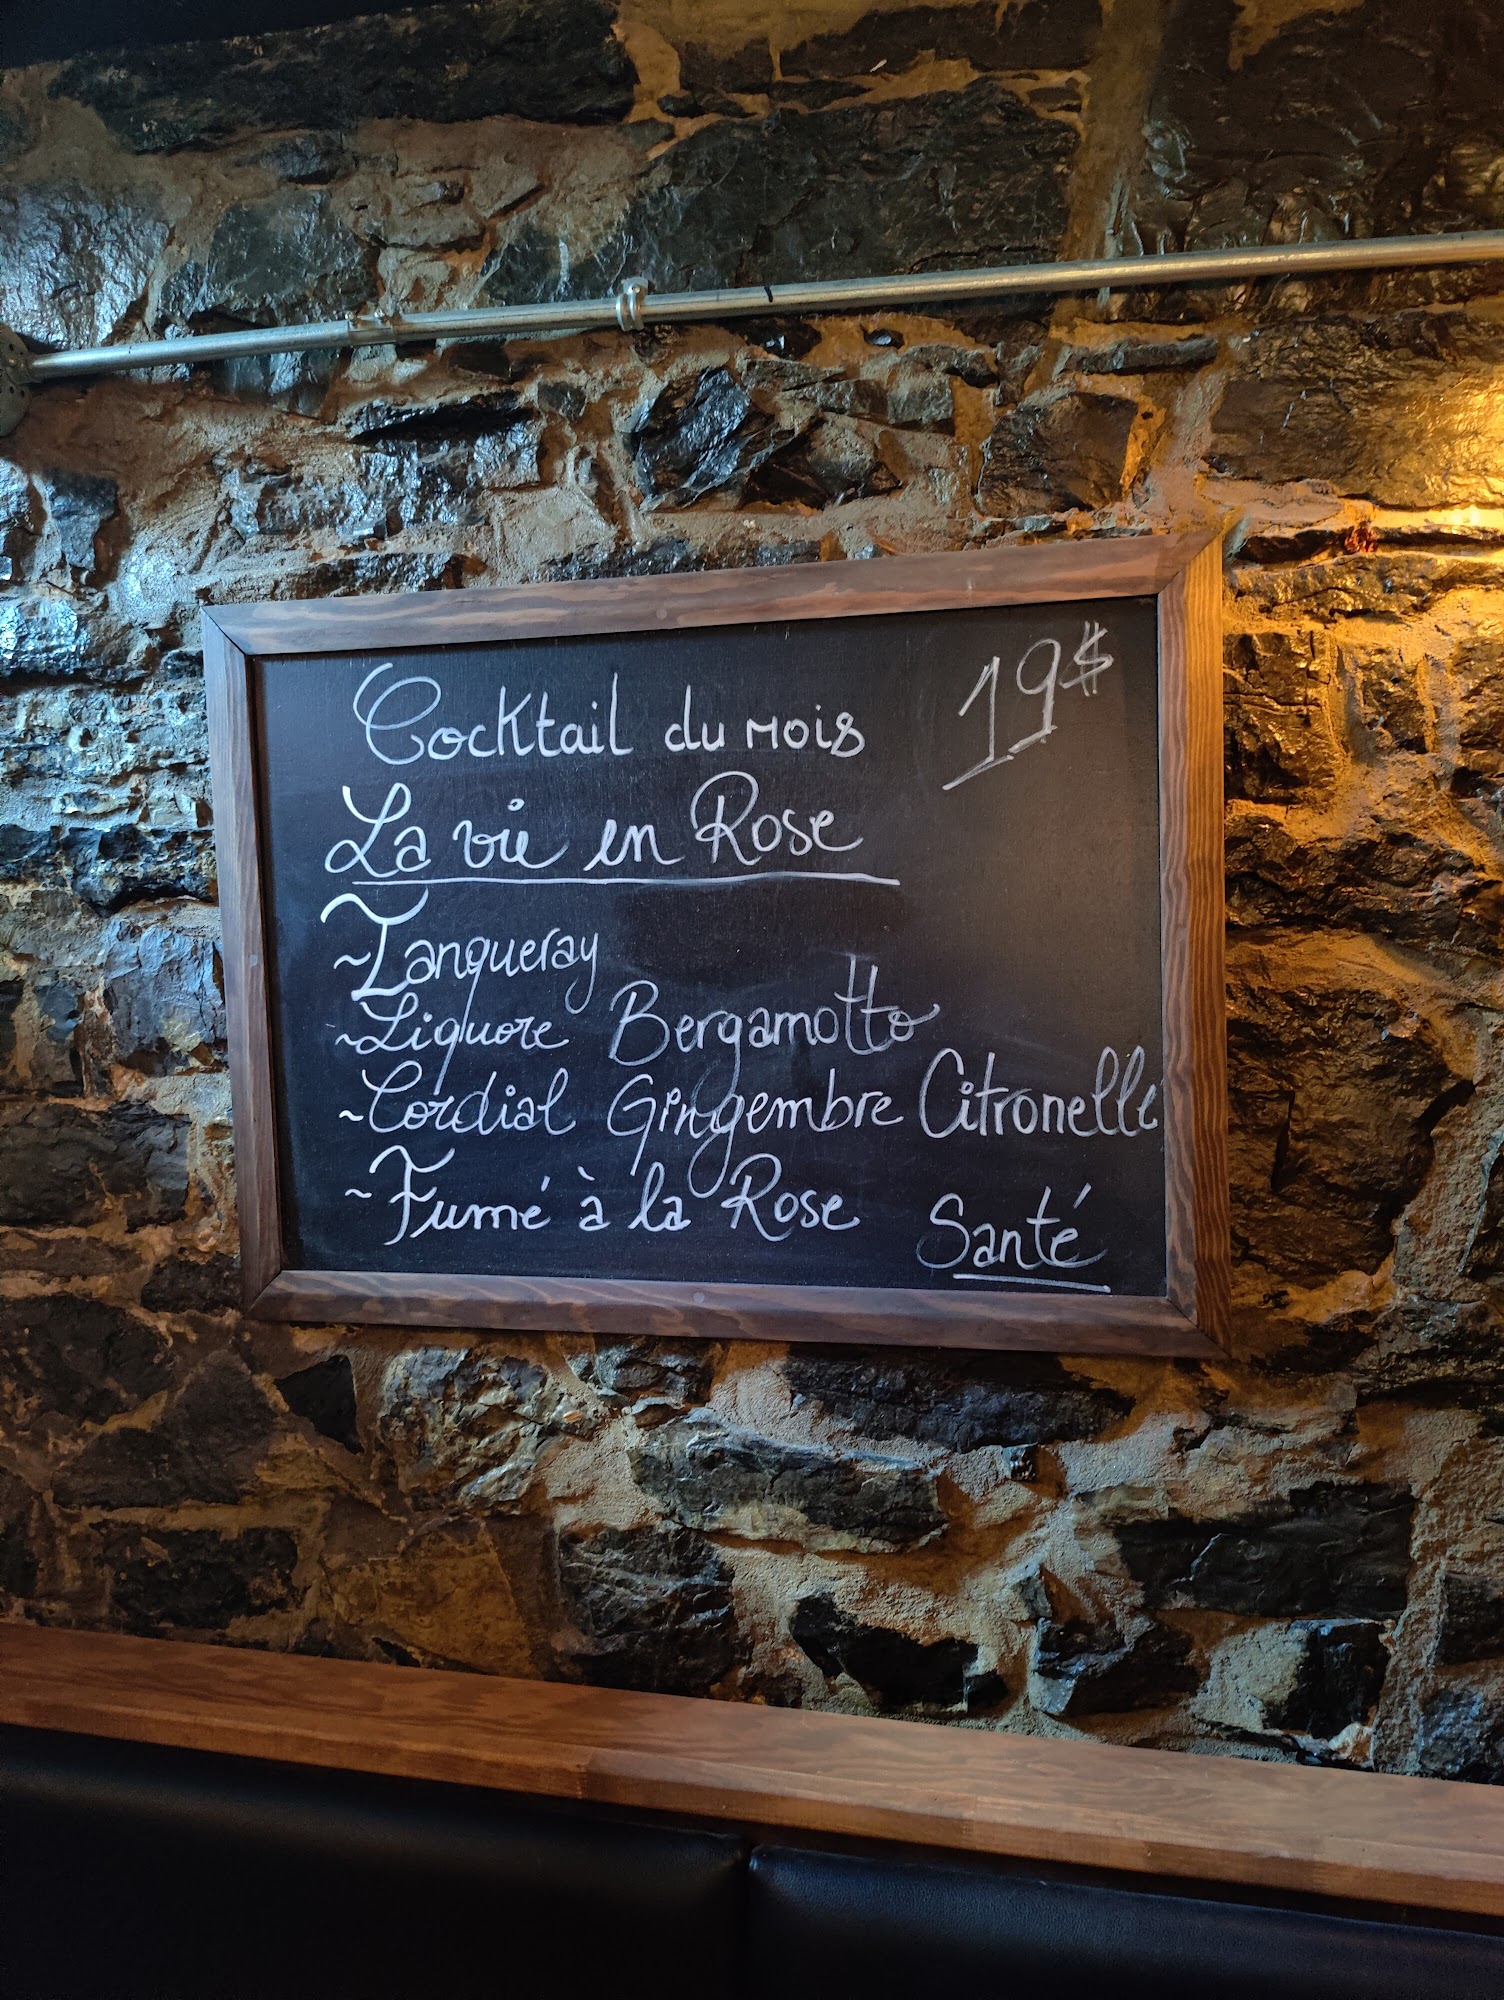 Cocktail du mois 19$
La vie en Rose
~Tanqueray
~Liquore Bergamotto
~Cordial Gingembre Citronelle
~Fumé à la Rose
Santé